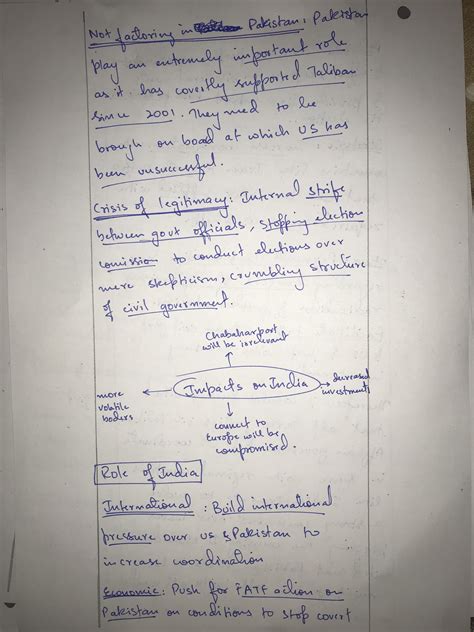 Not factoring in Pakistan: Pakistan
play an extremely important role
as it has covertly supported Taliban
since 2001. They need to be
brough on boad at which US has
been unsuccessful.
Crisis of legitimacy: Internal strife
between govt officials, stopping election
comission to conduct elections over
mere skepticism, crumbling structure
of civil government.
Chabahar port
will be irrelevant
more
volatile
boders
Impacts on India
decreased
investments
connect to
Europe will be
compromised.
Role of India
International: Build international
pressure over US & Pakistan to
increase coordination
Economic: Push for FATF action on
Pakistan on conditions to stop covert